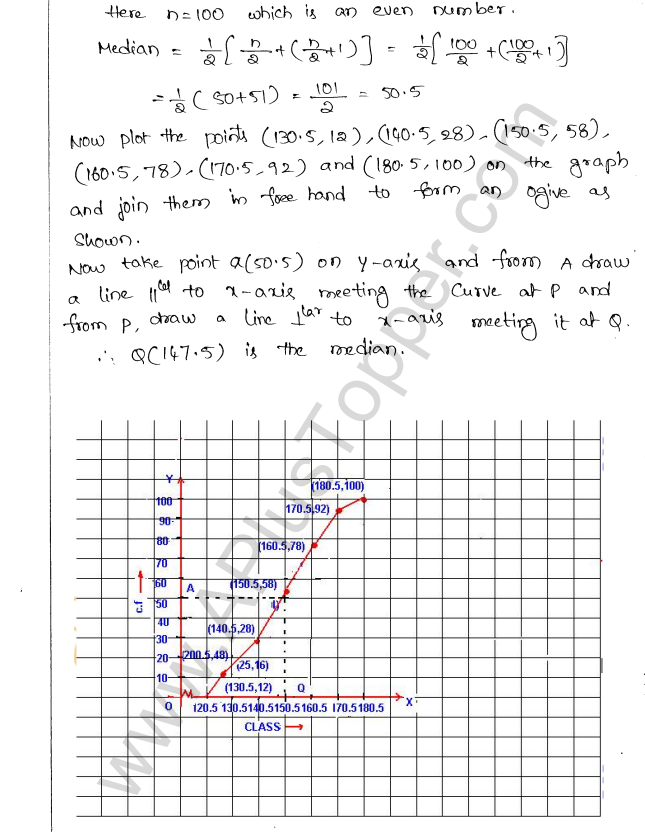 Here n=100 which is an even number.
Median = 1/2 [ n/2 + (n/2 +1) ] = 1/2 [ 100/2 + (100/2 +1 ]
= 1/2 ( 50+51) = 101/2 = 50.5
Now plot the points (130.5, 12), (140.5, 28), (150.5, 58),
(160.5, 78), (170.5, 92) and (180.5, 100) on the graph
and join them in free hand to form an ogive as
shown.
Now take point a(50.5) on y-axis and from A draw
a line ||lel to x-axis meeting the curve at P and
from P, draw a line ⊥lar to x-axis meeting it at Q.
∴ Q(147.5) is the median.
Y
(180.5,100)
100
170.5,92)
90
80
(160.5,78)
70
60
A
(150.5,58)
50
c.f
40
(140.5,28)
30
20
(200.5,48)
(25,16)
10
(130.5,12)
Q
O
120.5 130.5 140.5 150.5 160.5 170.5 180.5
X
CLASS
www.APlusTopper.com